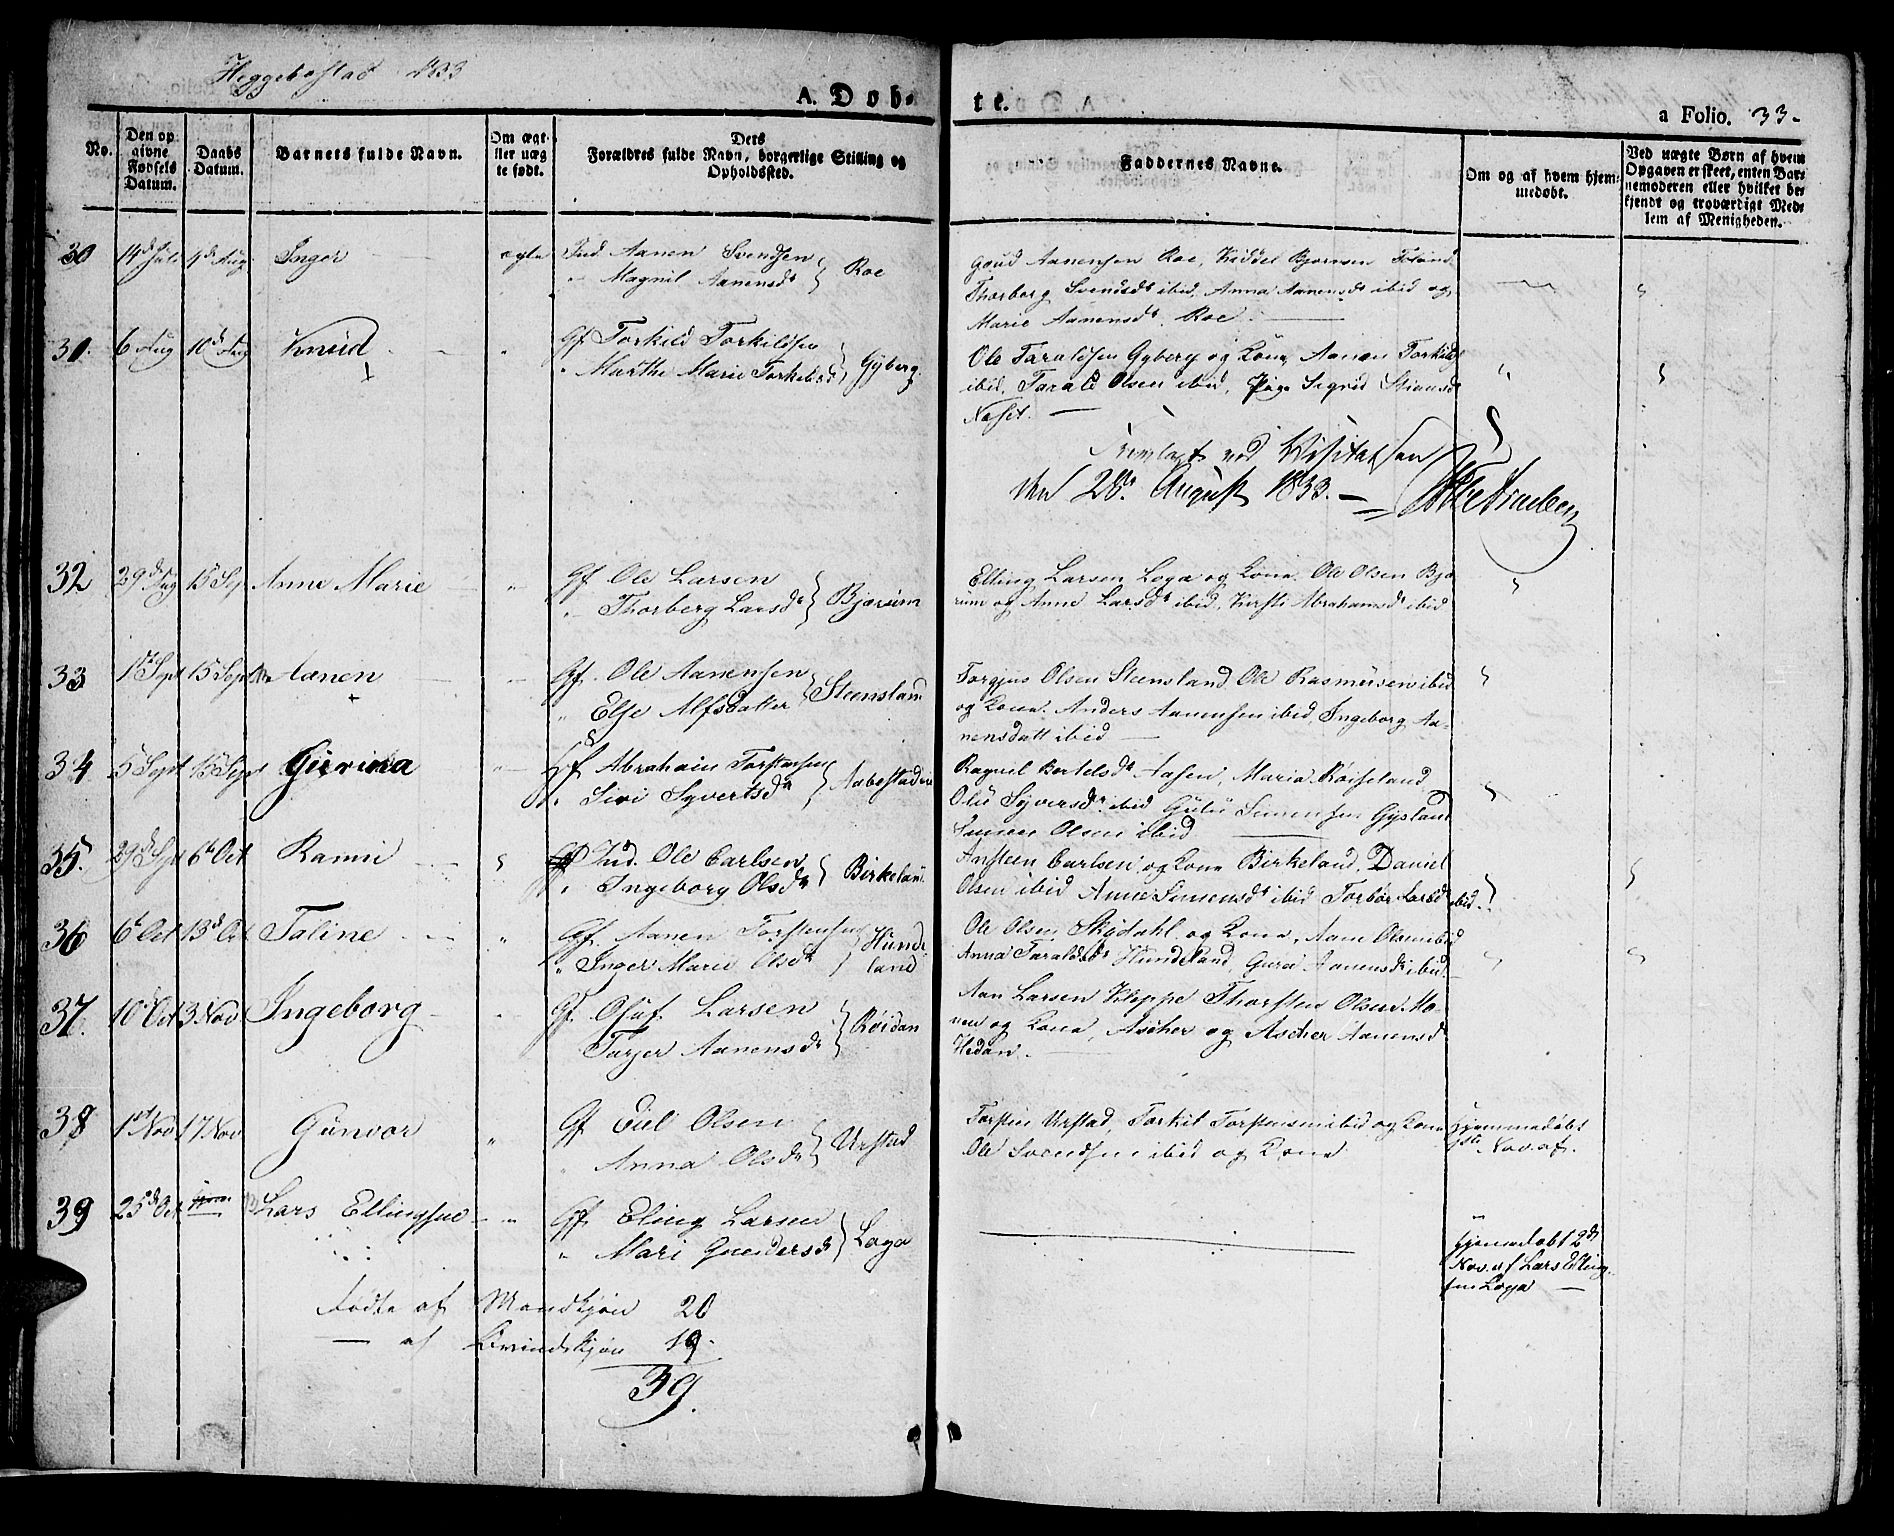 Heggebostad 1833
A. Døb-
te.
a Folio. 33-
No.
Den op
givne
Fødsels
Datum.
Daabs
Datum.
Barnets fulde Navn.
Om ægt-
eller uæg
te født.
Dets
Forældres fulde Navn, borgerlige Stilling og
Opholdssted.
Faddernes Navne.
Om og af hvem hjem-
medøbt.
Ved uægte Børn af hvem
Opgaven er skeet, enten Bar-
nemoderen eller hvilket be-
kjendt og troværdigt Med-
lem af Menigheden.
30 14d Juli 4d Aug Inger ægte Ind. Aanen Svendsen
Magnil Aanensdr Roe
Aanensen Roe, Kiddel Bjornsen
Thorborg Svendsdr ibid, Anna Aanensdr ibid og
Marie Aanensdr. Roe.
31. 6 Aug 10d Aug Knud Gf Torkild Torkildsen
Marthe Marie Torkelsd Gyberg.
Ole Taraldsen Gyberg og Kone, Aanen Torkilds
ibid, Tarald Olsen ibid, Pige Sigrid Stiansd
Neset.
Fremlagt ved Visitatsen
den 28. August 1833.
32 29d Aug 15 Sep Anne Marie Gf Ole Larsen
Thorberg Larsdr Bjærum
Elling Larsen Loga og Kone. Ole Olsen Bjæ
rum og Anne Larsdr ibid, Kirsti Abrahamsdr ibid
33 1st Sept 15 Sept Aanen Gf. Ole Aanensen
Else Alfsdatter Steensland
Torgjus Olsen Steensland Ole Rasmussen ibid
og Kone. Anders Aanensen ibid, Ingeborg Aa-
nensdatt ibid
34 5 Sept 15 Sept Gurina Gf Abraham Torstensen
Siri Syvertsdr Aabestad
Ragnil Bertelsdr Aasen, Maria Røiseland
Olu Syversdr ibid Gulu Simensen Gysland
Simen Olsen ibid
35. 29d Sept 6te Oct Ranni Ind. Ole Carlsen
Ingeborg Olsdr Birkeland
Ansteen Carlsen og Kone Birkeland, Daniel
Olsen ibid Anne Simensdr ibid Torbor Larsdr ibid.
36 6te Oct 13d Oct Taline Gf. Aanen Torstensen
Inger Marie Olsdr Hunde
land
Ole Olsen Skogdahl og Kone, Aanen Olsen ibid
Anna Taraldsdr Hundeland, Gura Aanensdr ibid
37. 10 Oct 3 Nov Ingeborg Gf. Oluf Larsen
Tarjer Aanensdr Røidan
Aan Larsen Kleppe Thorsten Olsen Mo-
nen og Kone, Ascher og Ascher Aanensdr
Hedan.
38 1st Nov 17 Nov Gunvor Gf Eiel Olsen
Anna Olsdr Urstad
Torsten Urstad, Torkil Torstensen ibid og Kone
Ole Svendsen ibid og Kone
Hjemmedøbt
Nov. af.
39 25d Oct Lars Ellingsen Gf. Eling Larsen
Mari Gundersdr Loga
Hjemmedøbt 2d
Nov. af Lars Elling-
sen Loga
Fødte af Mandkjøn 20
af Qvindekjøn 19.
39.